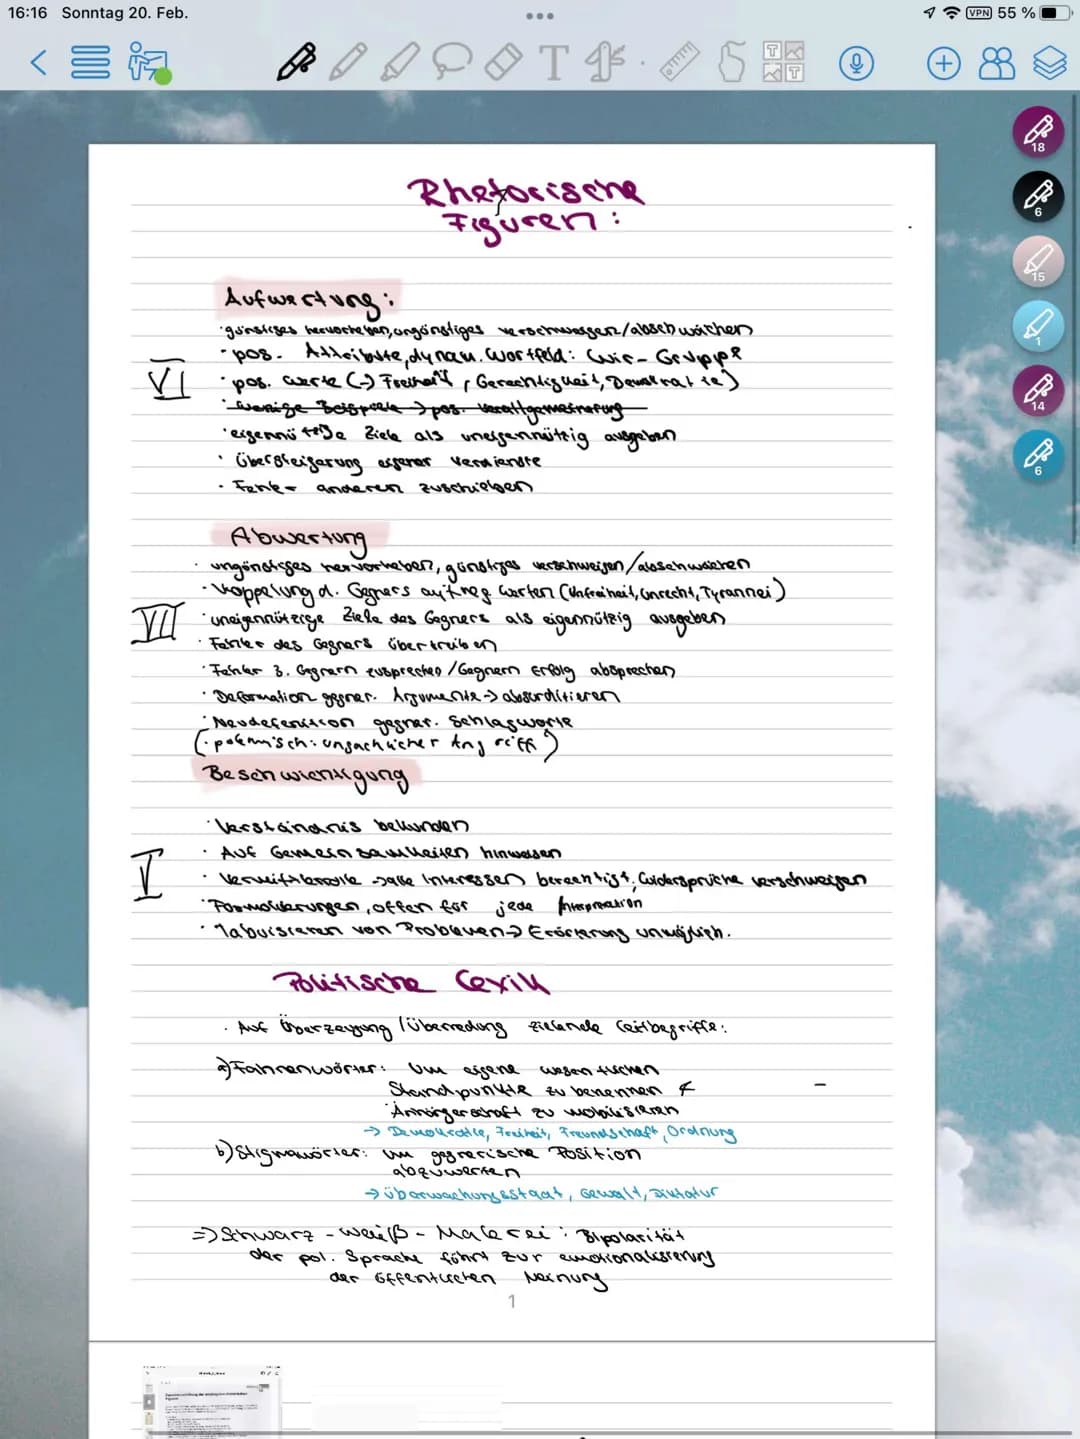 16:16 Sonntag 20. Feb.
VPN 55 %
18
6
15
1
14
6
Rhetorische
Figuren:
Aufwertung:
· günstiges hervorheben, ungünstiges verschweigen/abschwächen
· pos. Attribute, dynam. Wortfeld: Wir-Gruppe
VI
· pos. Werte (→ Freiheit, Gerechtigkeit, Demokratie)
· wenige Beispiele → pos. Verallgemeinerung
· eigennützige Ziele als uneigennützig ausgeben
· Übersteigerung eigener Verdienste
· Fehler anderen zuschieben
Abwertung
· ungünstiges hervorheben, günstiges verschweigen/abschwächen
· Koppelung d. Gegners auf neg Werten (Unfreiheit, Unrecht, Tyrannei)
VII
· uneigennützige Ziele des Gegners als eigennützig ausgeben
· Fehler des Gegners übertreiben
· Fehler 3. Gegnern zusprechen/Gegnern Erfolg absprechen
· Deformation gegner. Argumente → absurditieren
· Neudefenition gegner. Schlagworte
(· polemisch: unsachlicher Angriff)
Beschwichtigung
· Verständnis bekunden
· Auf Gemeinsamkeiten hinweisen
I
· → alle Interessen berechtigt, Widersprüche verschweigen
· Formulierungen, offen für jede Interpretation
· Tabuisieren von Problemen → Erörterung unmöglich.
Politische Lexik
· Auf Überzeugung/Überredung zielende Leitbegriffe:
a) Fahnenwörter: Um eigene wesentlichen
Standpunkte zu benennen &
Anhängerschaft zu mobilisieren
→ Demokratie, Freiheit, Freundschaft, Ordnung
b) Stigmawörter: um gegnerische Position
abzuwerten
→ Überwachungsstaat, Gewalt, Diktatur
⇒ Schwarz-weiß-Malerei: Bipolarität
der pol. Sprache führt zur emotionalisierung
der öffentlichen Meinung
1